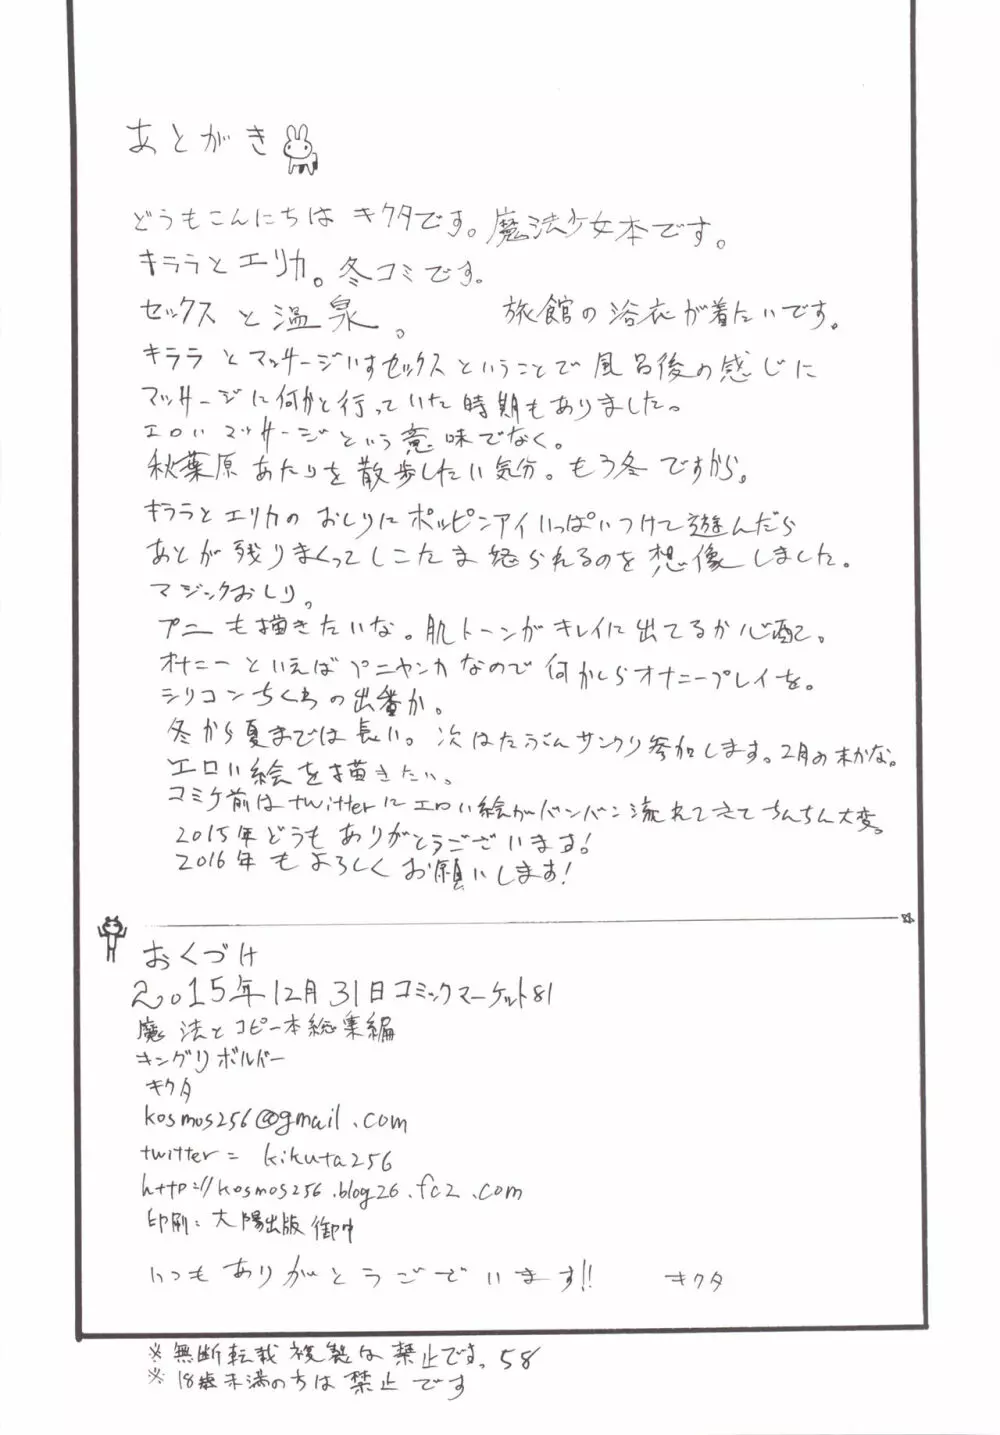 あとがき
どうもこんにちは キクタです。魔法少女本です。
キララとエリカ。冬コミです。
セックスと温泉。 旅館の浴衣が着たいです。
キララとマッサージいすセックスということで風呂後の感じに
マッサージに何かと行っていた時期もありました。
エロいマッサージという意味でなく。
秋葉原あたりを散歩したい気分。もう冬ですから。
キララとエリカのおしりにポッピンアイいっぱいつけて遊んだら
あとが残りまくってしこたま怒られるのを想像しました。
マジックおしり。
プニも描きたいな。肌トーンがキレイに出てるか心配。
オナニーといえばプニヤンカなので何かしらオナニープレイを。
シリコンちくわの出番か。
冬から夏までは長い。次はたぶんサンクリ参加します。2月の末かな。
エロい絵を描きたい。
コミケ前はtwitterにエロい絵がバンバン流れてきてちんちん大変。
2015年どうもありがとうございます!
2016年もよろしくお願いします!
おくづけ
2015年12月31日コミックマーケット81
魔法とコピー本総集編
キングリボルバー
キクタ
kosmos256@gmail.com
twitter = kikuta256
http://kosmos256.blog26.fc2.com
印刷: 大陽出版 御中
いつもありがとうございます!! キクタ
※無断転載複製は禁止です。58
※18歳未満の方は禁止です